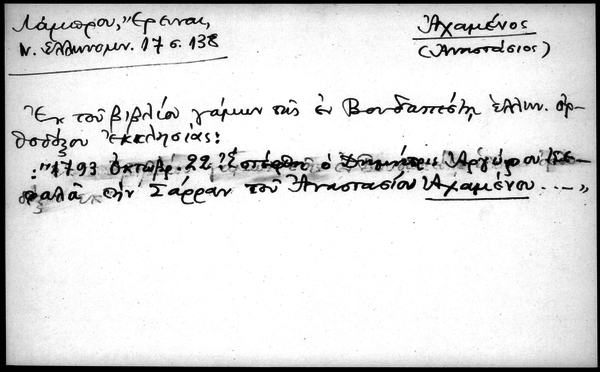 Λάμπρου, Ἔρευναι,
Ν. Ἑλληνομν. 17 σ. 138
Ἀχαμένος
(Ἀναστάσιος)
Ἐκ τοῦ βιβλίου γάμων τῆς ἐν Βουδαπέστῃ ἑλλην. ὀρ-
θοδόξου ἐκκλησίας:
"1793 Ὀκτωβρ. 22 ὁ Δημήτρι Ἀργύρου
τὴν Σάρραν τοῦ Ἀναστασίου Ἀχαμένου...–"